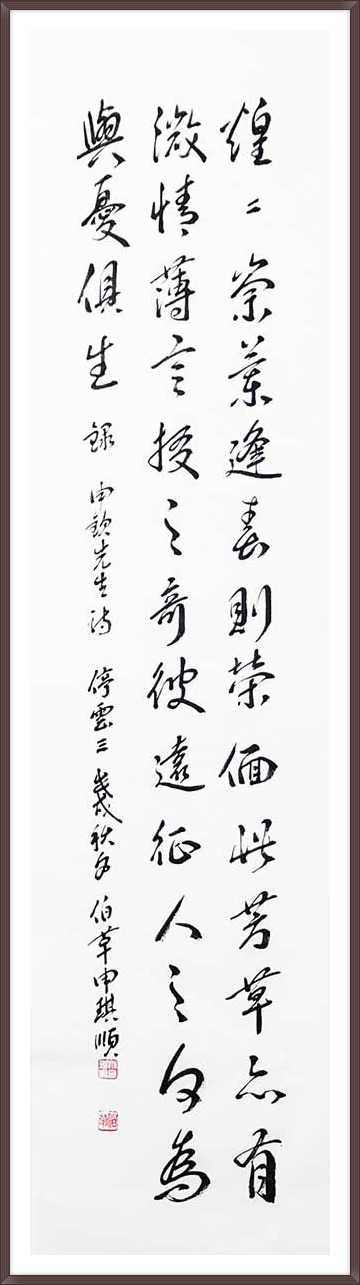 煌〻崇葉逢春則榮緬此芳草亦有
微情薄言掇之寄彼遠征人之何為
與憂俱生 錄 申欽先生詩 停雲三 歲秋夕 伯草申琪順